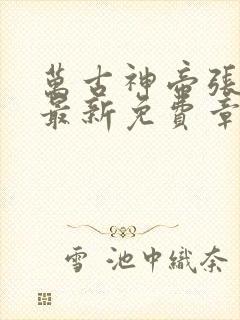 萬古神帝張
最新免費章
雪 池中織奈